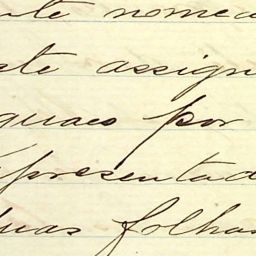 nte nomea
ste assign
quaes por
epresentad
duas folhas